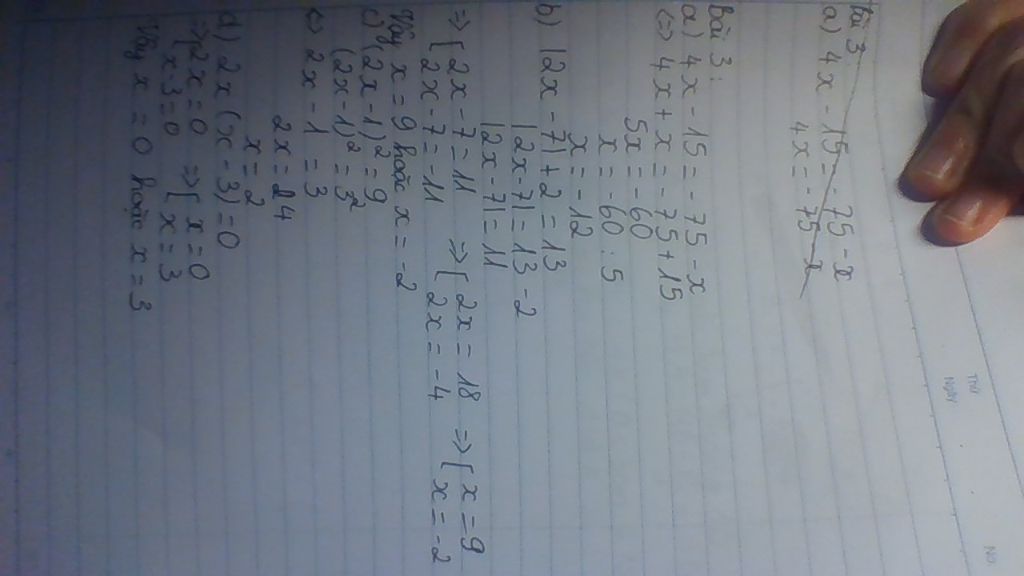 Thứ
Ngày
No.
Bài 3
a) 4x - 15 = - 75 - x
4x = - 75 - x
Bài 3:
a) 4x - 15 = - 75 - x
<=> 4x + x = - 75 + 15
5x = - 60
x = - 60 : 5
x = - 12
b) |2x - 7| + 2 = 13
|2x - 7| = 13 - 2
|2x - 7| = 11
=> [ 2x - 7 = 11 => [ 2x = 18 => [ x = 9
2x - 7 = -11 2x = -4 x = -2
Vậy x = 9 hoặc x = -2
c) (2x - 1)² = 9
(2x - 1)² = 3²
<=> 2x - 1 = 3
2x = 4
x = 2
d) 2x (x - 3) = 0
=> [ 2x = 0 => [ x = 0
x - 3 = 0 x = 3
Vậy x = 0 hoặc x = 3